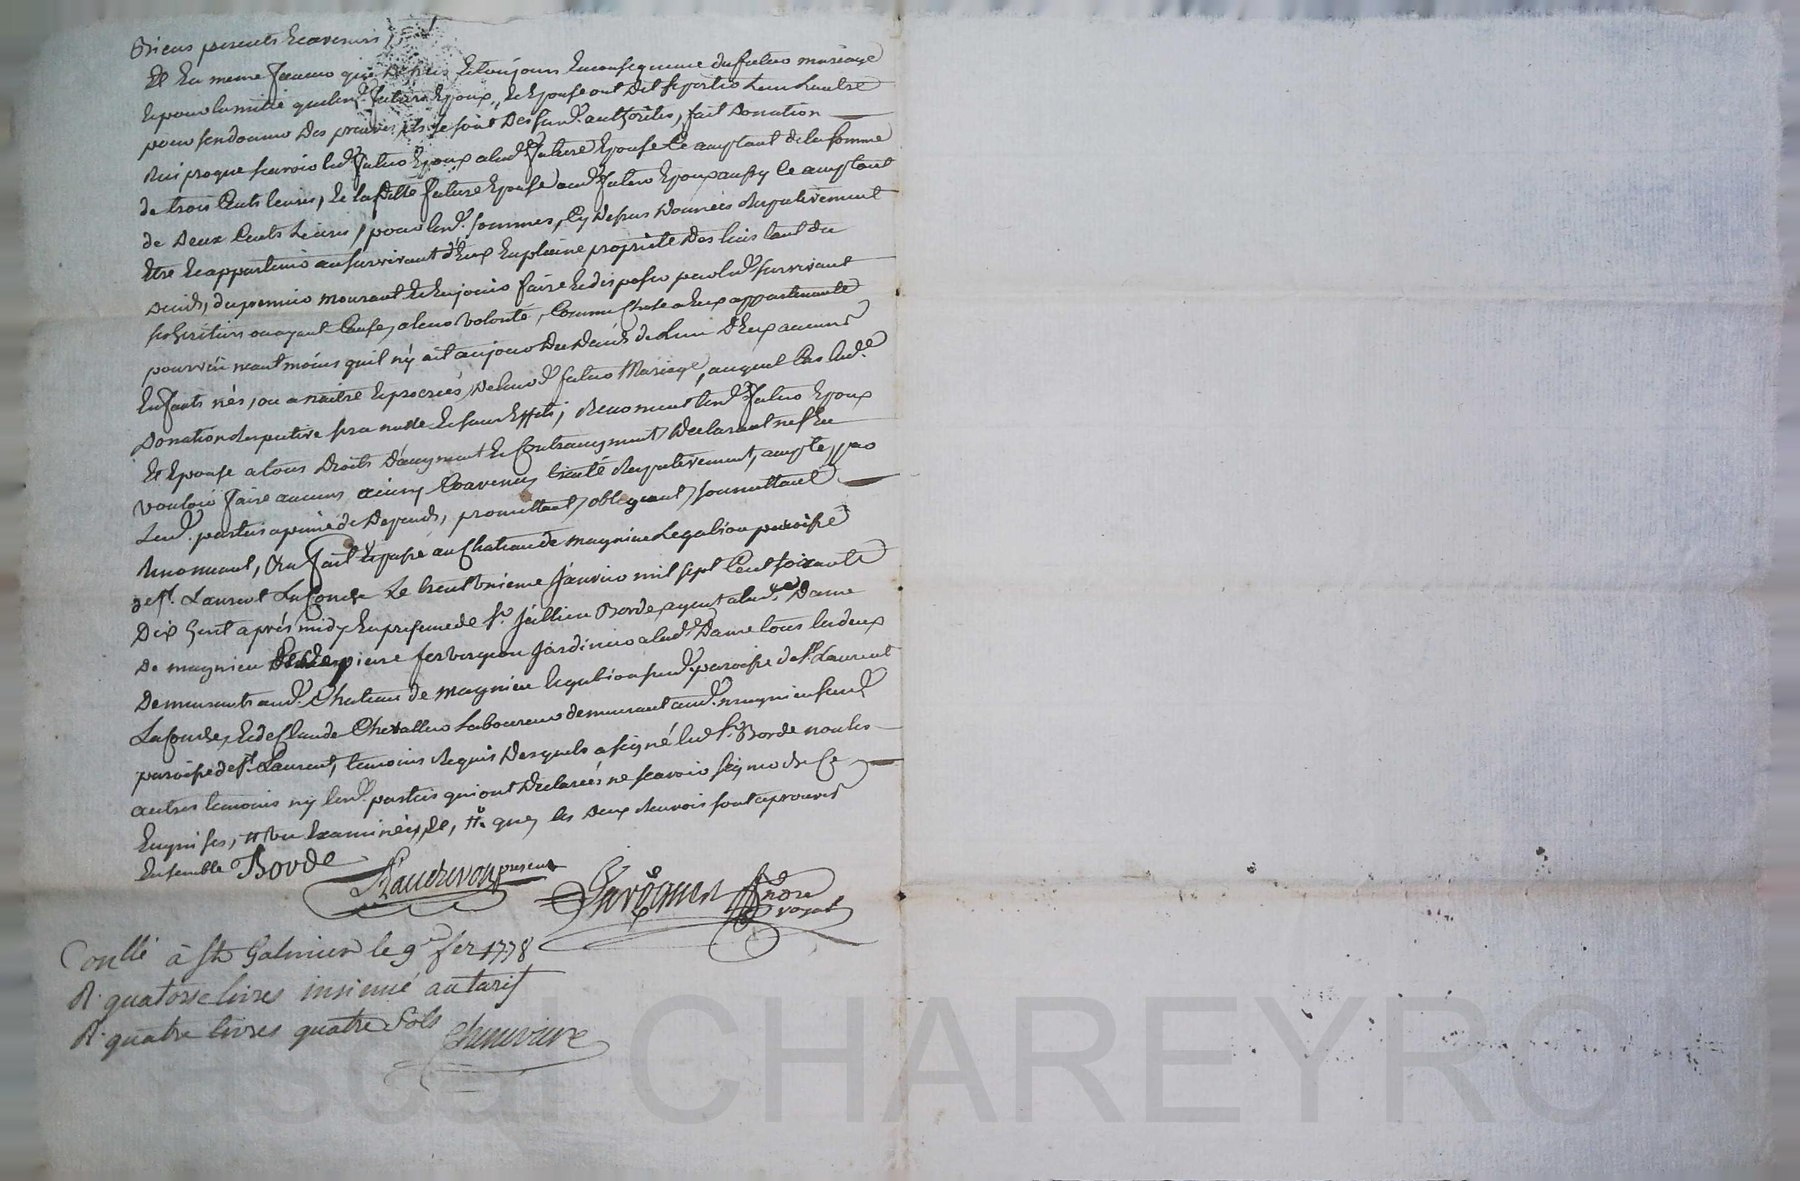 Biens presents & avenirs,
Et en meme faveur que dessus & toujours en consequence du futur mariage
& pour l'amitié que lesd. futurs Epoux, & Epouse ont dit se porter l'un L'autre
pour sen donner des preuves, ils se sont des susd. authorités, fait Donation
Reciproque scavoir led. futur Epoux a lad. future Epouse Le cas estant de la somme
de trois Cents Livres, & laditte future Epouse aud. futur Epoux aussy le cas estant
de deux Cents Livres, pour lesd. sommes, Cy dessus Données Respectivement
Etre & appartenir au survivant d'Eux En plaine proprieté Des linstant du
decès, du premier mourant & En jouir faire & disposer par led. survivant
ses heritiers ou ayant Cause, a leur volonté, Comme Chose a Eux appartenante
pourvû neant moins quil n'y ait au jour Du Decès de L'un D'Eux aucuns
Enfants nés, ou a naitre & procreés, de leurd. futur Mariage, au quel Cas lad.
Donation Respective sera nulle & sans Effets; Renonceant lesd. futurs Epoux
& Epouse a tous Droits D'augment & Contraugment Declarant nes En
vouloir faire aucuns ainsy Convenu traité Respectivement, accepté, par
Lesd. parties a peine de Depends, promettant, obligeant, soumettant
Renonceant, &a fait & passé au Chateau de magnieu Legabion paroisse
de St. Laurent La Conche Le trente unieme Janvier mil sept Cent soixante
Dix huit après midy En presence de Sr. Jullien Borde, agent a lad. Dame
De magnieu pierre fervergeon Jardinier a lad. Dame tous les deux
Demeurants aud. Chateau de magnieu legabion susd. paroisse de St. Laurent
La Conche, & de Claude Chevallier Laboureur demeurant aud. magnieu susd.
paroisse de St. Laurent, temoins Requis Desquels a signé led. Sr. Borde non les
autres temoins ny lesd. parties qui ont Declarés ne scavoir signer de Ce
Enquises, # que les deux Renvois sont aprouvés
Ensemble Borde
present
André
royal
Conllé à St Galmier le 9e fer 1778
R. quatorse livres insinué au tarif
R. quatre livres quatre Sols
Cheneviere
ascal CHAREYRON